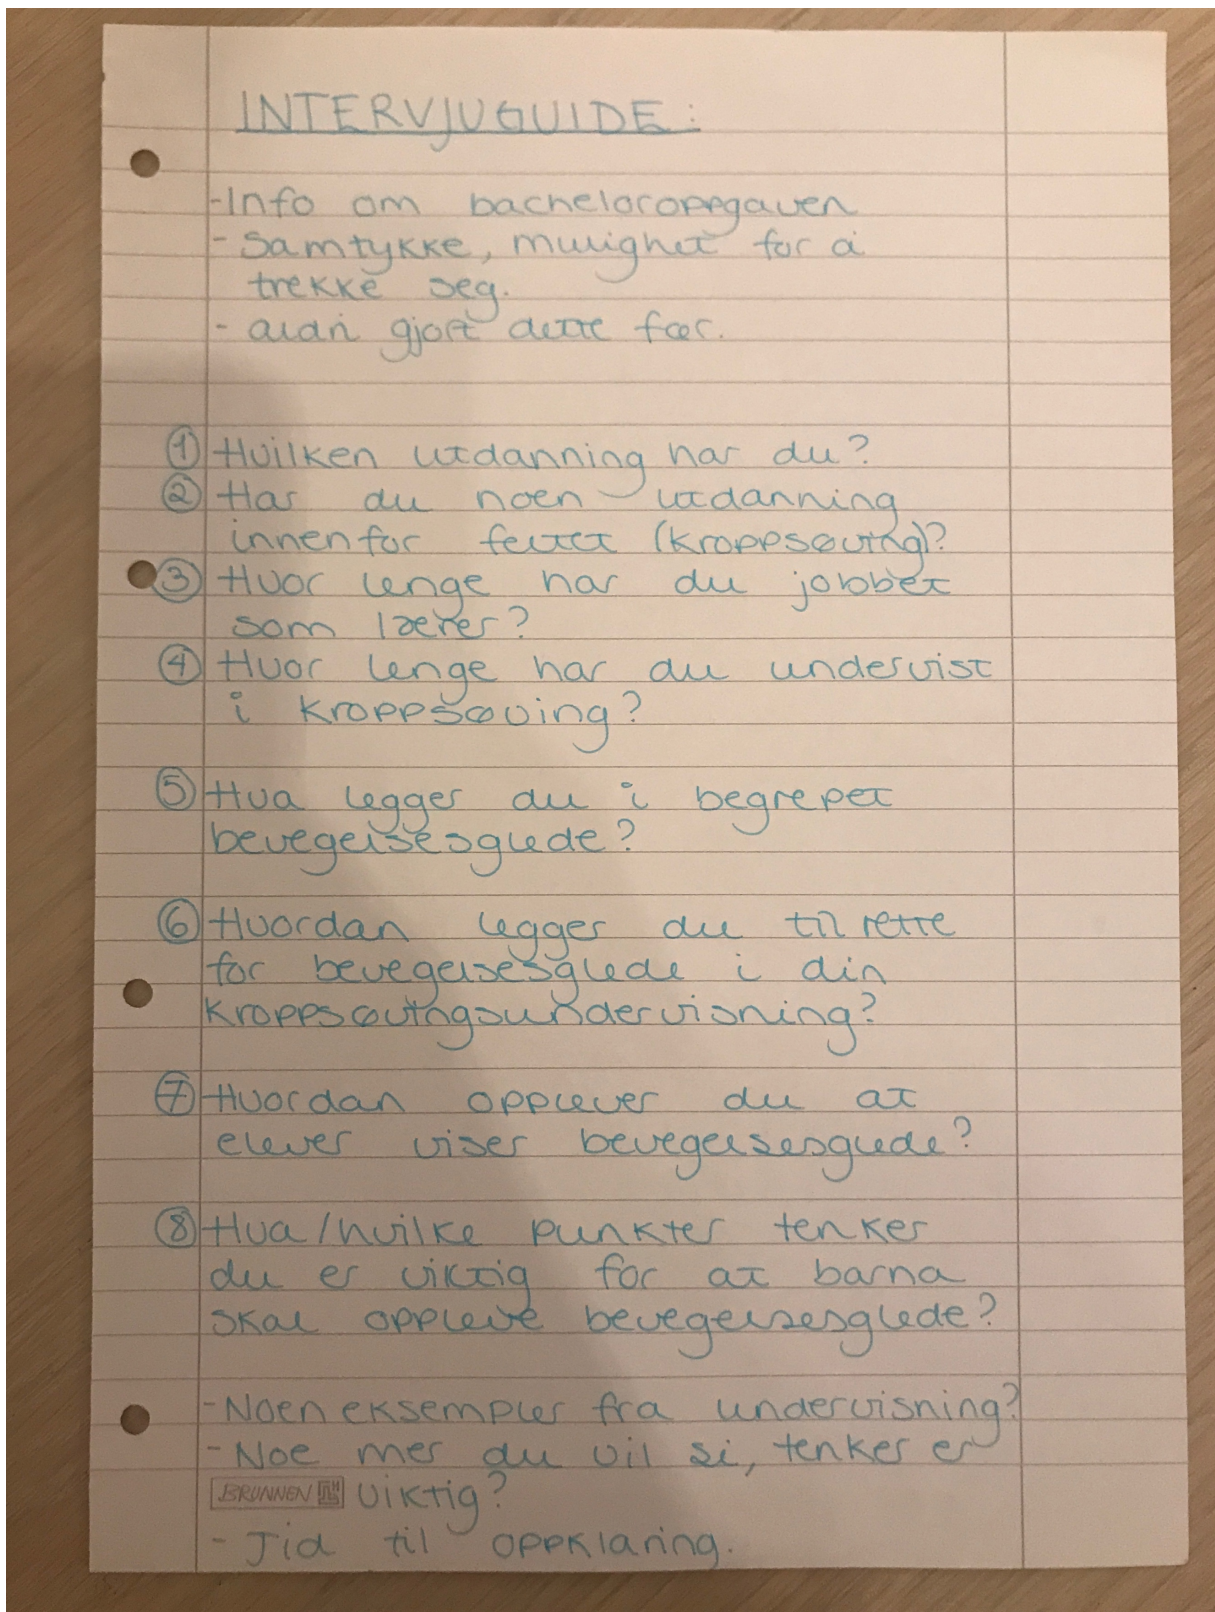 INTERVJUGUIDE:
-Info om bacheloroppgaven
- Samtykke, mulighet for å
trekke seg.
- aldri gjort dette før.
① Hvilken utdanning har du?
② Har du noen utdanning
innenfor feltet (kroppsøving)?
③ Hvor lenge har du jobbet
som lærer?
④ Hvor lenge har du undervist
i kroppsøving?
⑤ Hva legger du i begrepet
bevegelsesglede?
⑥ Hvordan legger du til rette
for bevegelsesglede i din
kroppsøvingsundervisning?
⑦ Hvordan opplever du at
elever viser bevegelsesglede?
⑧ Hva/hvilke punkter tenker
du er viktig for at barna
skal oppleve bevegelsesglede?
-Noen eksempler fra undervisning?
- Noe mer du vil si, tenker er
BRUNNEN viktig?
- Tid til oppklaring.